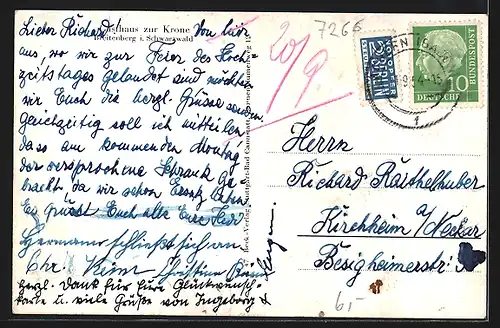 Gasthaus zur Krone
Breitenberg i. Schwarzwald
Lieber Richard! Von hier
aus, wo wir zur Feier des Hoch
zeitstages gelandet sind möchten
wir Euch die herzl. Grüsse senden.
Gleichzeitig soll ich mitteilen
dass am kommenden Montag
der versprochene Schrank ge
bracht, da wir schon Ersatz haben.
Es grüsst Euch alle Eure
Hermann schließt sich an
Chr. Keim Christine
herzl. Dank für Eure Glückwunsch-
karte u. viele Grüße von Ingeborg &
20/9.
7266
NOTOPFER
2 BERLIN
STEUERMARKE
DEUTSCHE
BUNDESPOST
10
Herrn
Richard Raithelhuber
Kirchheim a/Neckar
Besigheimerstr.
6,-